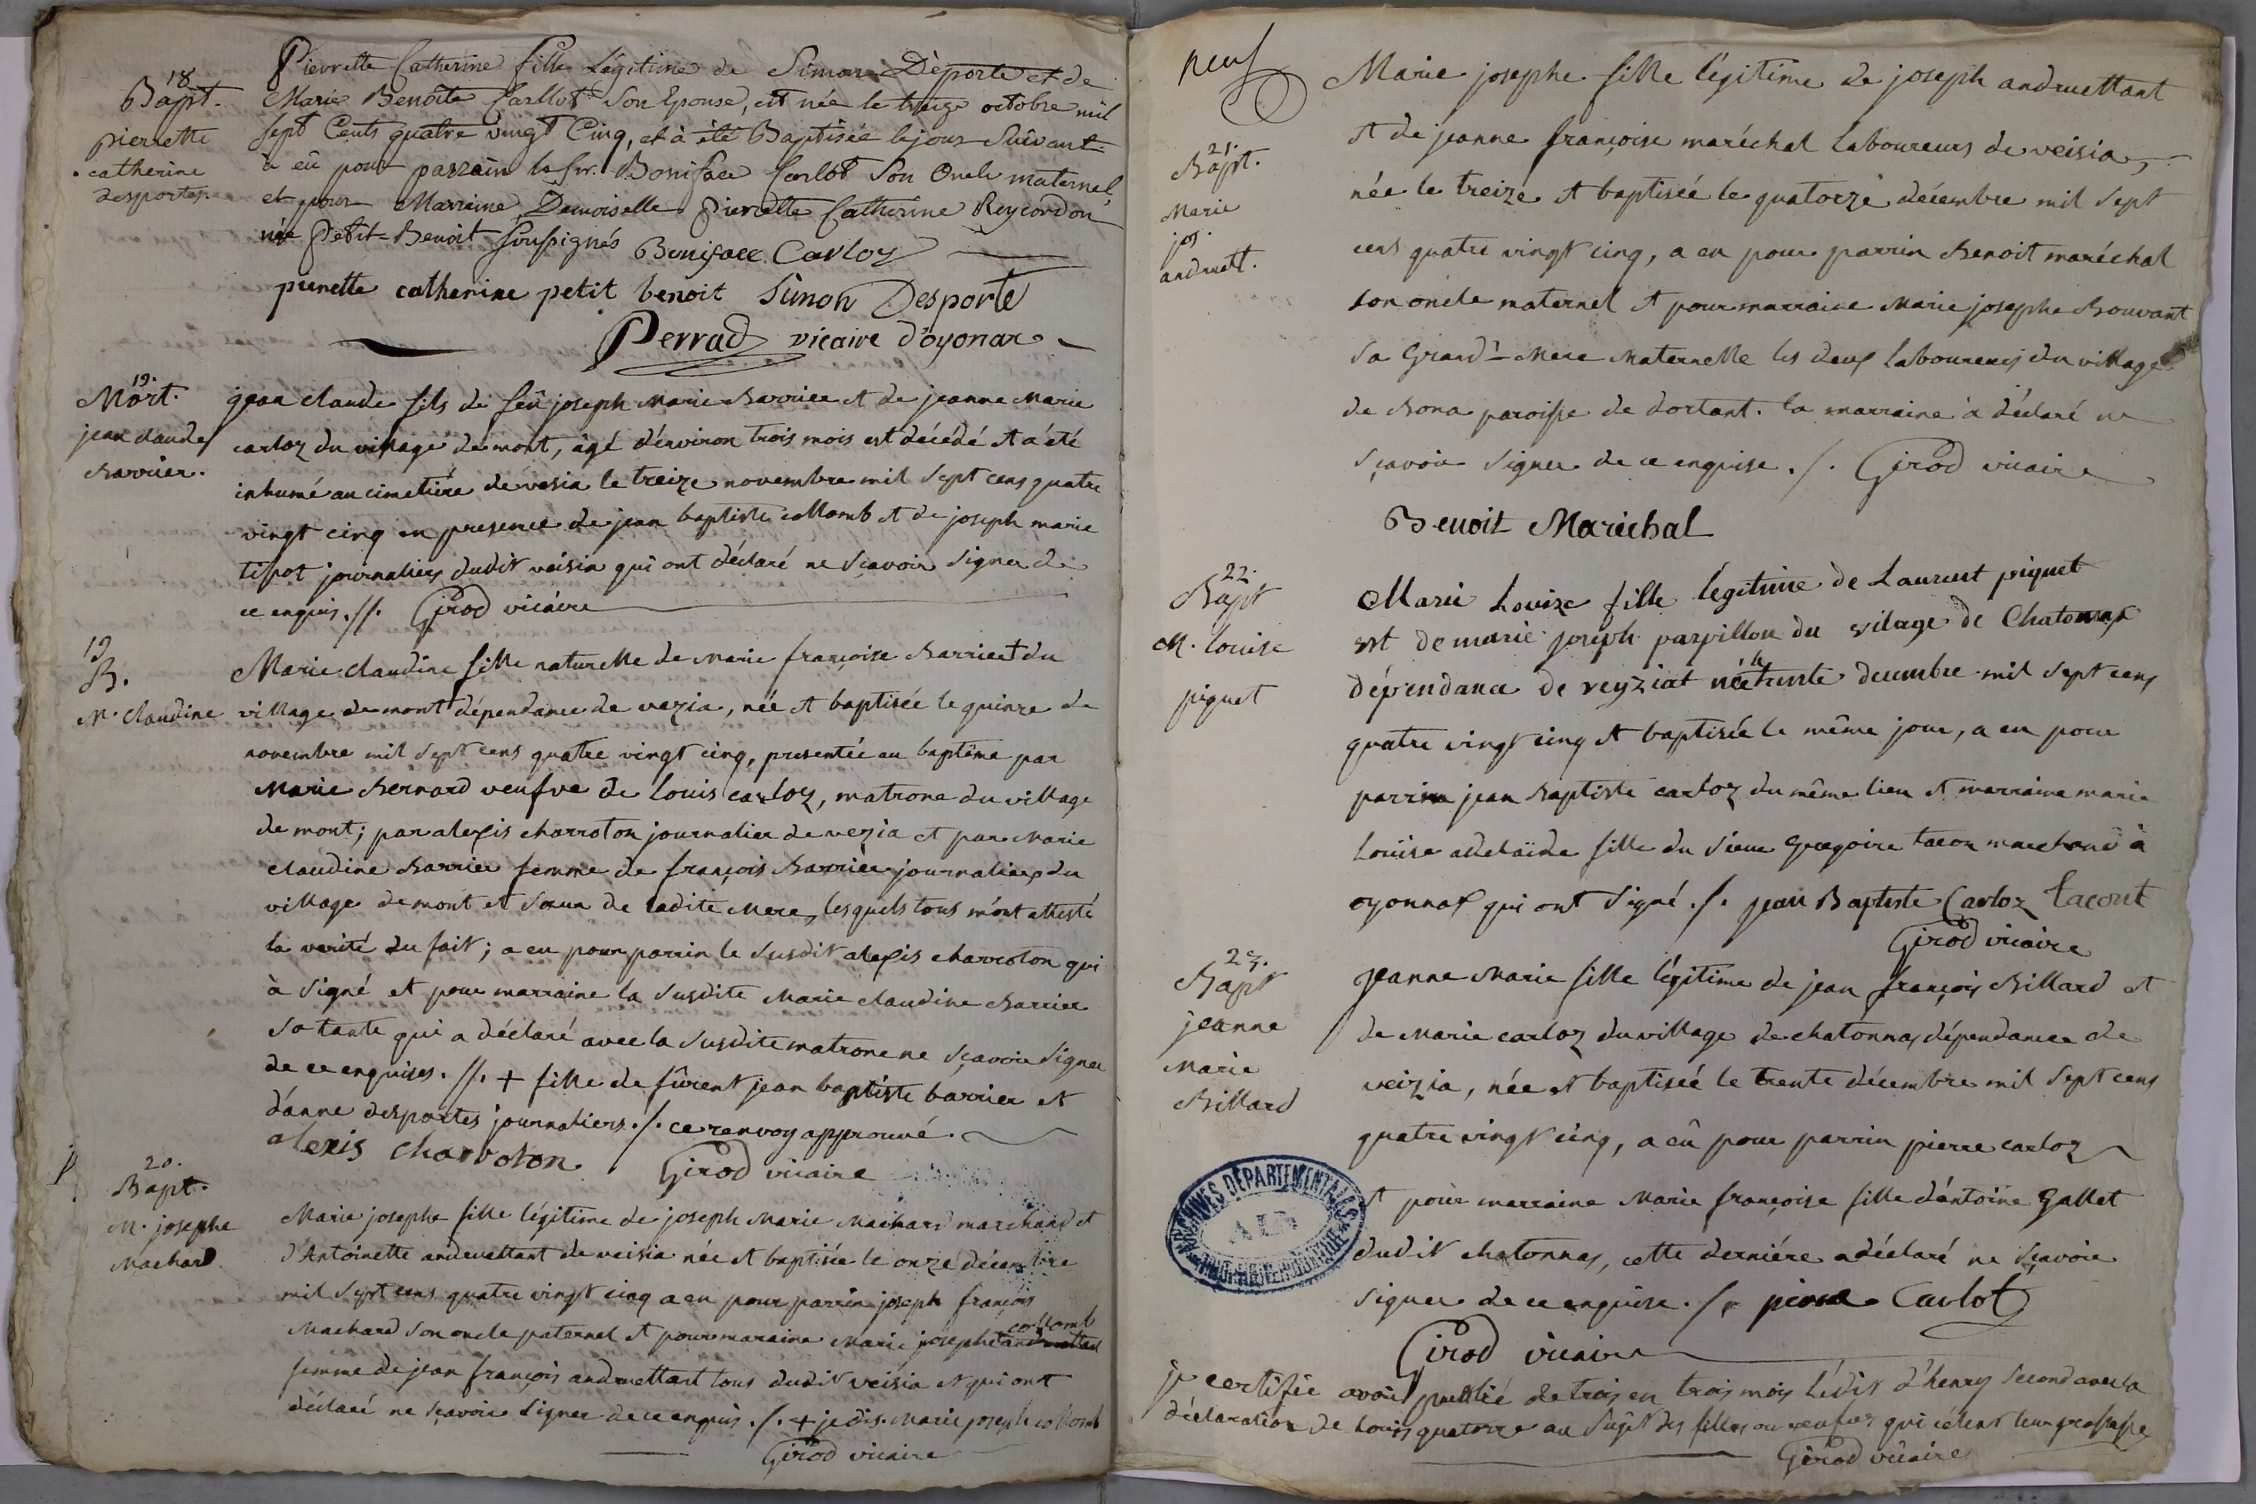 18
Bapt.
pierrette
catherine
desportes.
Pierrette Catherine fille Légitime de Simon Déporte et de
Marie Benoîte Carllot Son Epouse, est née le treize octobre mil
sept Cents quatre vingt Cinq, et à été Baptisée le jour Suivant
à eû pour parrain le Sr. Boniface Carlot Son Oncle maternel,
et pour Marraine Demoiselle Pierrette Catherine Reycordon
née Petit-Benoit Soussignés Boniface Carloz
pierrette catherine petit benoit Simon Desporte
Perrad vicaire d'oyonax
19.
Mort.
jean claude
Barrier.
jean claude fils de feû joseph Marie Barrier et de jeanne Marie
carloz du village de mont, âgé d'environ trois mois est décédé et a été
inhumé au cimetiére de vesia le treize novembre mil sept cens quatre
vingt cinq en presence de jean baptiste collomb et de joseph marie
tissot journaliers dudit veisia qui ont déclaré ne Sçavoir Signer de
ce enquis .//. Girod vicaire
19
B.
M. claudine
Marie claudine fille naturelle de Marie françoise Barrier + du
village de mont dépendance de vezia, née et baptisée le quinze de
novembre mil sept cens quatre vingt cinq, presentée au baptême par
Marie Bernard veufve de Louis carloz, matrone du village
de mont; par alexis charroton journalier de vezia et par Marie
claudine Barrier femme de françois Barrier journaliers du
village de mont et Sœur de ladite Mere, lesquels tous m'ont attesté
la verité du fait; a eu pour parrin le Susdit alexis charroton qui
à Signé et pour marraine la Susdite Marie claudine Barrier
Sa tante qui a déclaré avec la Susdite matrone ne Sçavoir Signer
de ce enquises .//. + fille de fûrent jean baptiste barrier et
d'anne desportes journaliers ./. ce renvoy approuvé.
alexis charroton Girod vicaire
20.
Bapt.
M. josephe
Machard
Marie josephe fille légitime de joseph Marie Machard marchand et
d'Antoinette andruettant de veisia née et baptisée le onze décembre
mil Sept cens quatre vingt cinq a eu pour parrin joseph françois
Machard Son oncle paternel et pour maraine Marie josephe collomb
femme de jean françois andruettant tous dudit veisia et qui ont
déclaré ne Sçavoir Signer de ce enquis ./. + je dis Marie joseph collomb
Girod vicaire
neuf
21.
Bapt.
Marie
jos.
andruett.
Marie josephe fille légitime de joseph andruettant
et de jeanne françoise maréchal Laboureurs de veisia,
née le treize et baptisée le quatorze décembre mil Sept
cens quatre vingt cinq, a eu pour parrin Benoit maréchal
Son oncle maternel et pour marraine Marie josephe Bouvant
Sa Grand-Mere Maternelle les deux laboureurs du village
de Bona paroisse de dortant. la marraine a déclaré ne
Sçavoir Signer de ce enquise ./. Girod vicaire
Benoit Maréchal
22.
Bapt
M. louise
piquet
Marie Louize fille légitime de Laurent piquet
et de marie joseph parpillon du vilage de Chatonnax
dépendance de veyziat née le trente decembre mil Sept cens
quatre vingt cinq et baptisée le même jour, a eu pour
parrin jean Baptiste carloz du même lieu et marraine marie
Louise adelaïde fille du Sieur Gregoire tacon marchand à
oyonnax qui ont Signé ./. jean Baptiste Carloz tacont
Girod vicaire
23.
Bapt
jeanne
Marie
Billard
jeanne Marie fille légitime de jean françois Billard et
de Marie carloz du village de chatonnax dépendance de
veizia, née et baptisée le trente décembre mil Sept cens
quatre vingt cinq, a eû pour parrin pierre carloz
et pour marraine Marie françoise fille d'antoine Gallet
dudit chatonnax, cette derniére a déclaré ne Sçavoir
Signer de ce enquise ./. pierre Carlot
Girod vicaire
ARCHIVES DÉPARTEMENTALES
AIN
je certifie avoir publié de trois en trois mois l'édit d'henry Second avec la
déclaration de Louis quatorze au Sujet des filles ou veufves qui cèlent leur grossesse
Girod vicaire